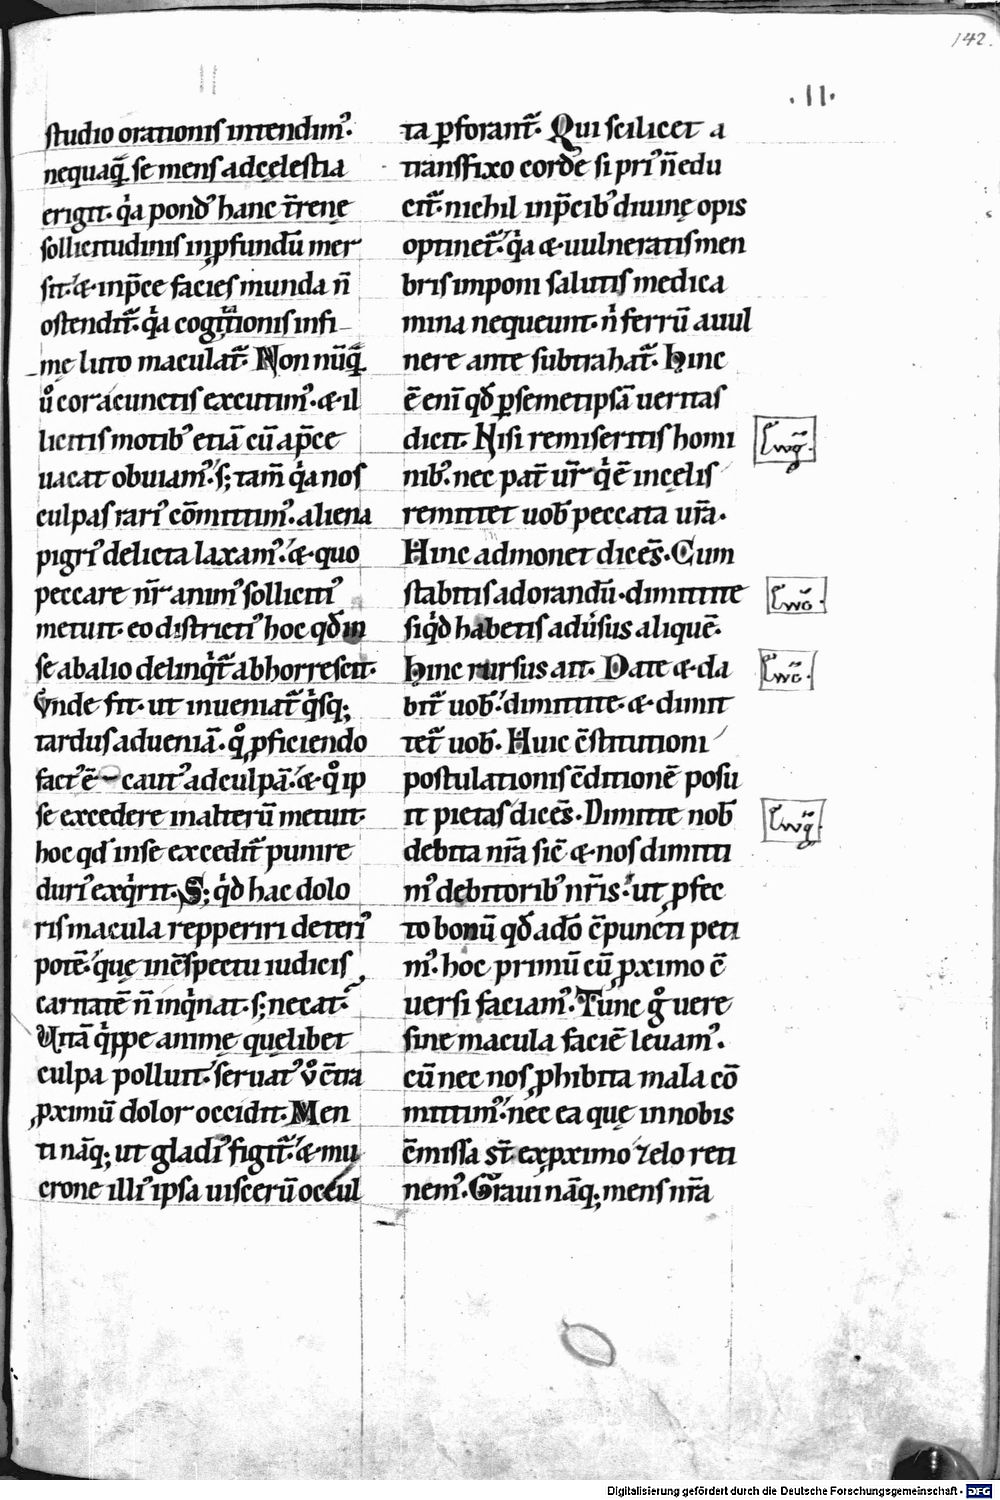 142.
.II.
studio orationis intendim᷒.
nequaq̃ se mens ad cęlestia
erigit. q̇a pond᷒ hanc t̃renę
sollicitudinis in ꝓfundũ mer
sit. & in p̃ce facies munda ñ
ostendit᷒. q̇a cogitationis infi
mę luto maculat᷒. Non nũq̃
ů cor a cunctis excutim᷒. & il
licitis motib᷒ etiã cũ a p̃ce
uacat obuiam᷒. s; tam̃ q̇a nos
culpas rari᷒ cõmittim᷒. aliena
pigri᷒ delicta laxam᷒. & quo
peccare nr̃ anim᷒ solliciti᷒
metuit. eo districti᷒ hoc qđ in
se ab alio delinq̇t᷒ abhorrescit.
Vnde fit. ut inueniat᷒ q̇sq;
tardus a ueniã. q̊ ꝓficiendo
fact᷒ ẽ caut᷒ ad culpã. & q̊ ip
se excedere in alterũ metuit.
hoc qđ in se excedit᷒ punire
duri᷒ exq̇rit. S; q̇d hac dolo
ris macula repperiri deteri᷒
potẽ. quę in c̃spectu iudicis
caritatẽ ñ inq̇nat. s; necat.
Vitã q̇ppe animę quęlibet
culpa polluit. seruat᷒ ů c̃tra
ꝓximũ dolor occidit. Men
ti nãq; ut gladi᷒ figit᷒. & mu
crone illi᷒ ipsa uiscerũ occul
ta ꝑforant᷒. Qui scilicet a
transfixo corde si pri᷒ ñ edu
cit᷒. nichil in p̃cib᷒ diuinę opis
optinet᷒. q̇a & uulneratis men
bris imponi salutis medica
mina nequeunt. n̍ ferrũ a uul
nere ante subtrahat᷒. Hinc
ẽ eni̅ qđ ꝑ semetipsã ueritas
dicit. Nisi remiseritis homi
nib᷒. nec pat̃ ur̃ q̇ ẽ in cęlis
remittet uob᷒ peccata ur̃a.
Hinc admonet dicẽs. Cum
stabitis ad orandũ. dimittite
siq̇d habetis adủsus aliquẽ.
Hinc rursus ait. Date & da
bit᷒ uob᷒. dimittite. & dimit
tet᷒ uob᷒. Huic c̃stitutioni
postulationis c̃ditionẽ posu
it pietas dicẽs. Dimitte nob᷒
debita nr̃a sic̃ & nos dimitti
m᷒ debitorib᷒ nr̃is. ut ꝓfec
to bonũ qđ a dõ c̃puncti peti
m᷒. hoc primũ cũ ꝓximo c̃
uersi faciam᷒. Tunc g̊ uere
sine macula faciẽ leuam᷒.
cũ nec nos ꝓhibita mala cõ
mittim᷒. nec ea quę in nobis
c̃missa st̃ ex ꝓximo zelo reti
nem᷒. Graui nãq; mens nr̃a
Digitalisierung gefördert durch die Deutsche Forschungsgemeinschaft - DFG